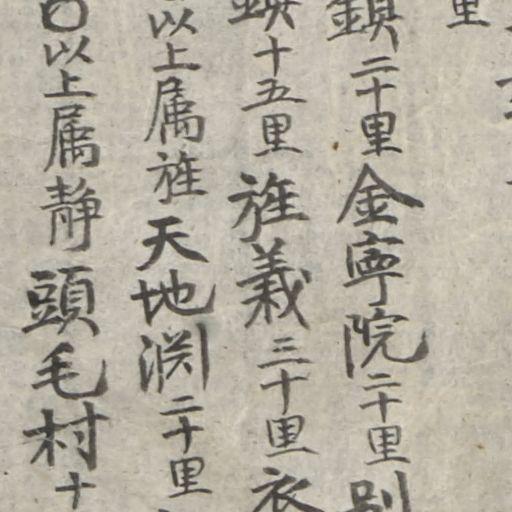 里
鎖二十里金寧院二十里別
鎖十五里旌義三十里衣
以上属旌天地渕二十里
○以上属静頭毛村十